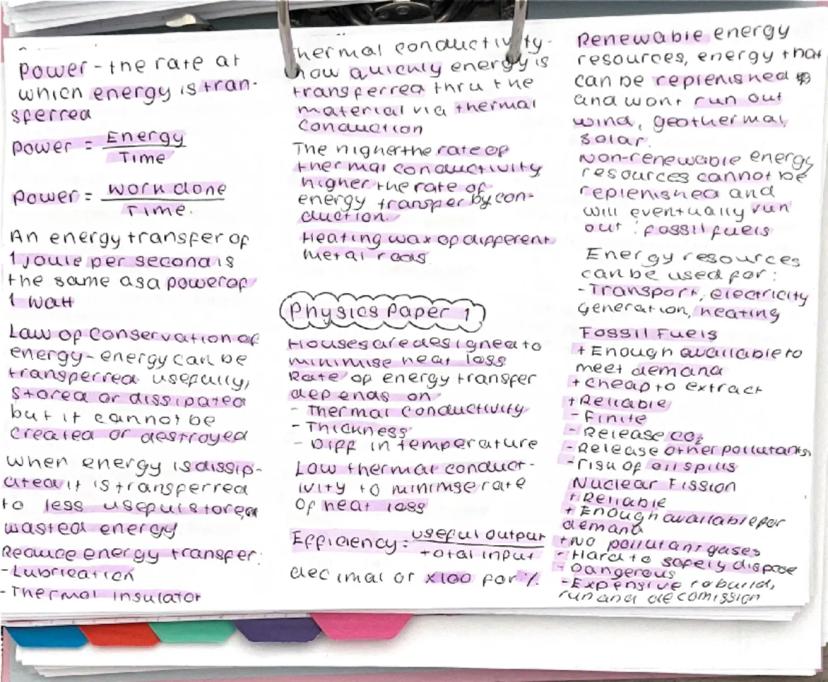 Power - the rate at
which energy is tran-
sferred
Power = Energy
Time
Power = work done
Time.
An energy transfer of
1 joule per second is
the same as a power of
1 watt
Law of conservation of
energy - energy can be
transferred usefully,
stored or dissipated
but it cannot be
created or destroyed
When energy is dissip-
ated it is transferred
to less useful stores
wasted energy
Reduce energy transfer:
- Lubrication
- Thermal insulator
Thermal conductivity -
how quickly energy is
transferred thru the
material via thermal
conduction
The higher the rate of
thermal conductivity
higher the rate of
energy transfer by con-
duction
Heating wax of different
metal rods.
Physics Paper 1
Houses are designed to
minimise heat loss
Rate of energy transfer
depends on
- Thermal conductivity
- Thickness
- Diff in temperature
Low thermal conduct-
ivity to minimise rate
of heat loss
Efficiency = useful output
total input
decimal or x100 for %
Renewable energy
resources, energy that
can be replenished
and wont run out
wind, geothermal,
solar.
Non-renewable energy
resources cannot be
replenished and
will eventually run
out: fossil fuels
Energy resources
can be used for:
- Transport, electricity
generation, heating
Fossil Fuels
+ Enough available to
meet demand
+ cheap to extract
+ Reliable
- Finite
- Release CO2
- Release other pollutants
- risk of oil spills
Nuclear Fission
+ Reliable
+ Enough available for
demand
+ No pollutant gases
- Hard to safely dispose
- Dangerous
- Expensive to build,
run and decomission